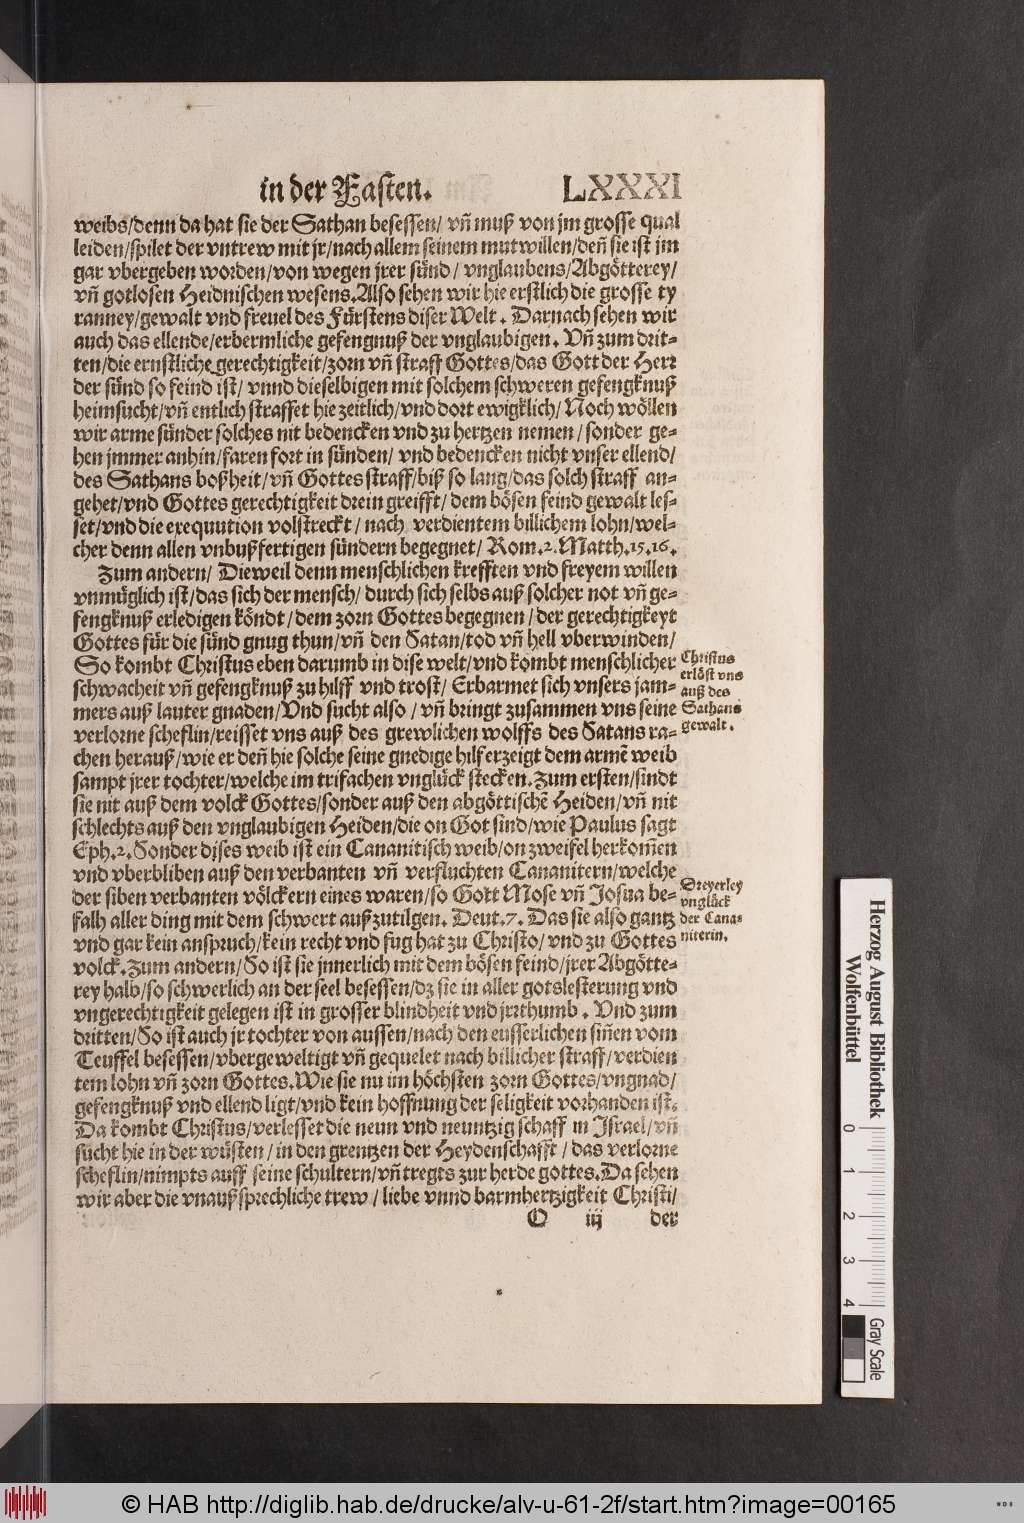 in der Fasten. LXXXI
weibs/denn da hat sie der Sathan besessen/ vñ muß von jm grosse qual
leiden/spilet der vntrew mit jr/nach allem seinem mutwillen/deñ sie ist jm
gar vbergeben worden/von wegen jrer sünd/ vnglaubens/Abgötterey/
vñ gotlosen Heidnischen wesens.Also sehen wir hie erstlich die grosse ty
ranney/gewalt vnd freuel des Fürstens diser Welt. Darnach sehen wir
auch das ellende/erbermliche gefengnuß der vnglaubigen. Vñ zum drit-
ten/die ernstliche gerechtigkeit/zorn vñ straff Gottes/das Gott der Herr
der sünd so feind ist/ vnnd dieselbigen mit solchem schweren gefengknuß
heimsucht/vñ entlich straffet hie zeitlich/vnd dort ewigklich/ Noch wöllen
wir arme sünder solches nit bedencken vnd zu hertzen nemen/sonder ge-
hen jmmer anhin/faren fort in sünden/ vnd bedencken nicht vnser ellend/
des Sathans boßheit/vñ Gottes straff/biß so lang/das solch straff an-
gehet/vnd Gottes gerechtigkeit drein greifft/ dem bösen feind gewalt les-
set/vnd die exequution volstreckt/ nach verdientem billichem lohn/wel-
cher denn allen vnbußfertigen sündern begegnet/ Rom.2.Matth.15.16.
Zum andern/ Dieweil denn menschlichen krefften vnd freyem willen
vnmüglich ist/das sich der mensch/ durch sich selbs auß solcher not vñ ge-
fengknuß erledigen köndt/dem zorn Gottes begegnen/der gerechtigkeyt
Gottes für die sünd gnug thun/vñ den Satan/tod vñ hell vberwinden/
So kombt Christus eben darumb in dise welt/vnd kombt menschlicher
schwacheit vñ gefengknuß zu hilff vnd trost/ Erbarmet sich vnsers jam-
mers auß lauter gnaden/Vnd sucht also/ vñ bringt zusammen vns seine
verlorne scheflin/reisset vns auß des grewlichen wolffs des Satans ra-
chen herauß/wie er deñ hie solche seine gnedige hilf erzeigt dem armē weib
sampt jrer tochter/welche im trifachen vnglück stecken.Zum ersten/sindt
sie nit auß dem volck Gottes/sonder auß den abgöttischē Heiden/vñ nit
schlechts auß den vnglaubigen Heiden/die on Got sind/wie Paulus sagt
Eph.2.Sonder dises weib ist ein Cananitisch weib/on zweifel herkom̃en
vnd vberbliben auß den verbanten vñ verfluchten Cananitern/welche
der siben verbanten völckern eines waren/so Gott Mose vñ Josua be-
falh aller ding mit dem schwert außzutilgen. Deut.7. Das sie also gantz
vnd gar kein anspruch/kein recht vnd fug hat zu Christo/ vnd zu Gottes
volck.Zum andern/So ist sie jnnerlich mit dem bösen feind/jrer Abgötte-
rey halb/so schwerlich an der seel besessen/dz sie in aller gotslesterung vnd
vngerechtigkeit gelegen ist in grosser blindheit vnd jrrthumb. Vnd zum
dritten/So ist auch jr tochter von aussen/nach den eusserlichen sin̄en vom
Teuffel besessen/vbergeweltigt vñ gequelet nach billicher straff/verdien
tem lohn vñ zorn Gottes.Wie sie nu im höchsten zorn Gottes/vngnad/
gefengknuß vnd ellend ligt/vnd kein hoffnung der seligkeit vorhanden ist.
Da kombt Christus/verlesset die neun vnd neuntzig schaff in Israel/vñ
sucht hie in der wüsten/in den grentzen der Heydenschafft/das verlorne
scheflin/nimpts auff seine schultern/vñ tregts zur herde gottes.Da sehen
wir aber die vnaußsprechliche trew/ liebe vnnd barmhertzigkeit Christi/
O iij der
Christus
erlöst vns
auß des
Sathans
gewalt.
Dreyerley
vnglück
der Cana-
niterin.
Herzog August Bibliothek
Wolfenbüttel
0 1 2 3 4
Gray Scale
© HAB http://diglib.hab.de/drucke/alv-u-61-2f/start.htm?image=00165